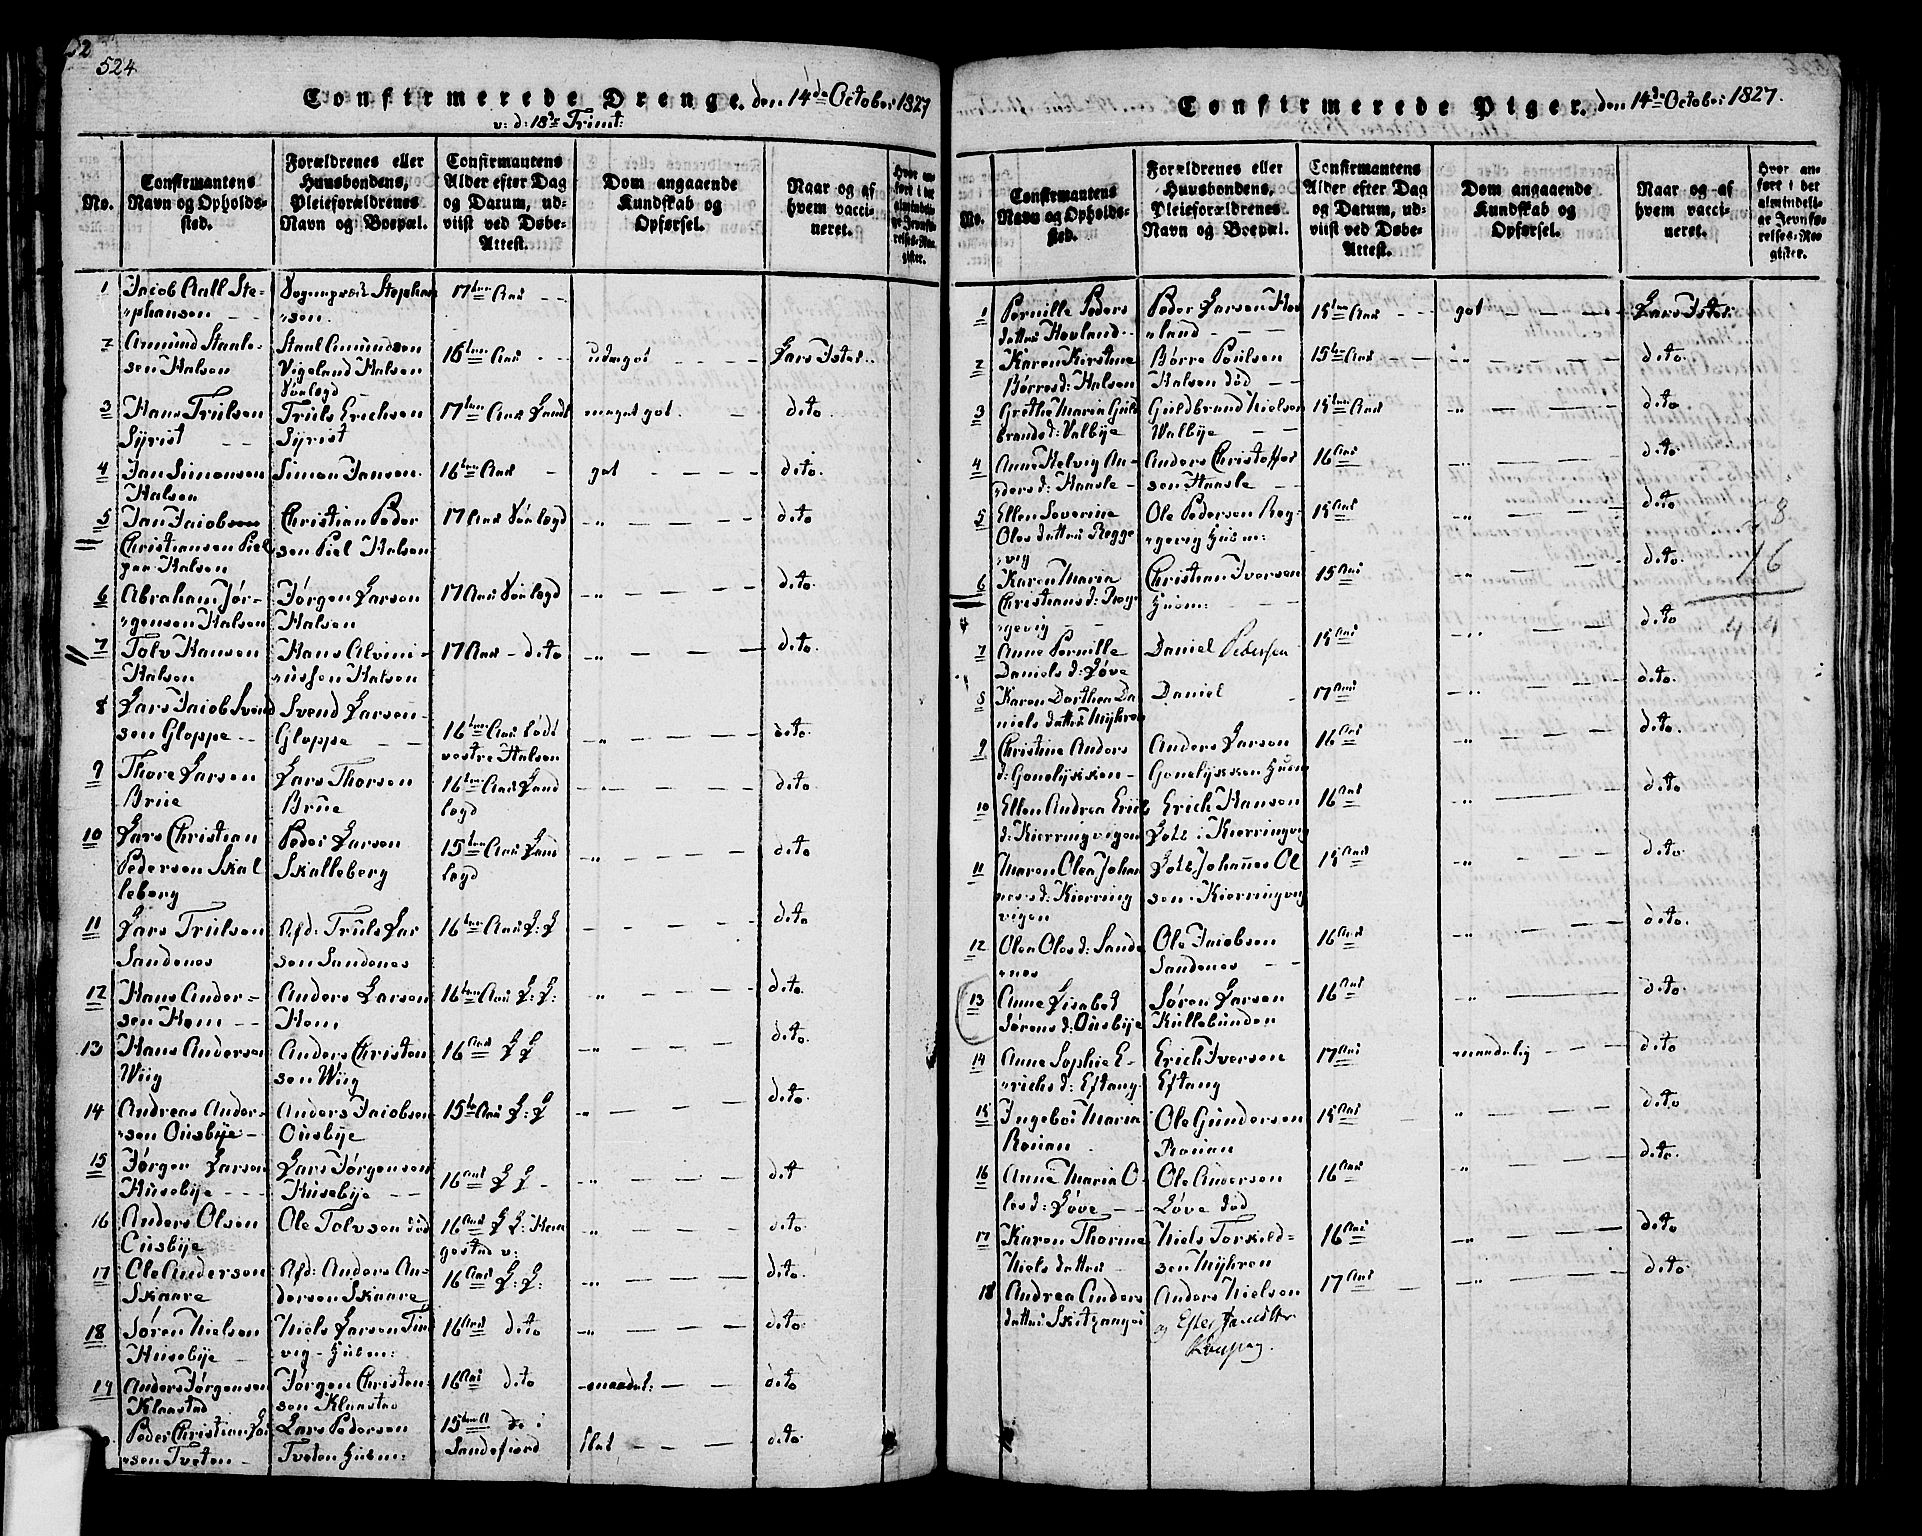 524
Confirmerede Drenge. den 14de October 1827
v: d: 18de Trinit:
No.
Confirmantens Navn og Opholdssted.
Forældrenes eller Huusbondens, Pleieforældrenes Navn og Boepæl.
Confirmantens Alder efter Dag og Datum, udviist ved Døbe-Attest.
Dom angaaende Kundskab og Opførsel.
Naar og af hvem vaccineret.
Hvor anført i det almindelige Jevnførelses-Register.
1 Jacob Aall Stephansen - - Stephansen. 17 Aar - -
2 Amund Staalesen Halsen Staal Amundsen Vigeland Halsen 16 Aar - - udmærket - - Lars Istre.
3 Hans Trulsen Syrist - - Truls Erichsen Syrist 17 Aar meget got. - dito.
4 Jan Simonsen Halsen Simon Jansen. 16 Aar - got - - - dito.
5 Jan Jacobsen Christiansen Halsen Christian Pedersen Piel Halsen 17 Aar - - - dito
6 Abraham Jørgensen Halsen Jørgen Larsen Halsen 17 Aar - - - dito.
7 Tolv Hansen Halsen Hans Halsen 17 Aar - dito - - - dito.
8 Lars Jacob Svendsen Gloppe - - Svend Larsen Gloppe - - 16 Aar vestre Halsen - - - dito.
9 Thore Larsen Brue Lars Thorsen Brue 16 Aar - - - dito.
10 Lars Christian Pedersen Skalleberg Peder Larsen Skalleberg 15 Aar - - - dito
11 Lars Trulsen Sandenes Afd: Truls Larsen Sandenes 16 Aar L: L - - - dito
12 Hans Andersen Hem - - Anders Larsen Hem 16 Aar L: L: - - - dito
13 Hans Andersen Wiig Anders Christensen Wiig 16 Aar L L - - - dito.
14 Andreas Andersen Ousbye - Anders Jacobsen Ousbye 15 Aar L: L - - - dito.
15 Jørgen Larsen Husebye - - - Lars Jørgensen Husebye - - 16 Aar L L - - - - dit
16 Anders Olsen Ousbye Ole Tolvsen død 16 Aar L L: - - - dito.
17 Ole Andersen Skaare Afd: Anders Andersen Skaare 16 Aar L: L: - - - dito.
18 Søren Nielsen Husebye - Niels Larsen 16 Aar dito - - - dito.
19 Anders Jørgensen Klaastad Jørgen Christensen Klaastad 16 Aar dito maadel: - - dito
Peder Christian Larsen Tveten - Lars Pedersen Tveten Huusm: 15 Sandefiord Slet - - - dito.
Confirmerede Piger. den 14de October 1827.
No.
Confirmantens Navn og Opholdssted.
Forældrenes eller Huusbondens, Pleieforældrenes Navn og Boepæl.
Confirmantens Alder efter Dag og Datum, udviist ved Døbe-Attest.
Dom angaaende Kundskab og Opførsel.
Naar og af hvem vaccineret.
Hvor anført i det almindelige Jevnførelses-Register.
1 Pernille Pedersdatter Hovland - Peder Larsen Hovland - - - 15 Aar - got - - - Lars Istre.
2 Karen Kirstine Børresd: Halsen Børre Poulsen Halsen død - - 15 Aar - - - dito.
3 Grethe Maria Guldbrandsd: Valbye Guldbrand Nielsen Walbye - - 15 Aar - - - dito
4 Anne Helvig Andersd: Haasle - Anders Christoffersen Haasle - - 16 Aar - - - dito.
5 Ellen Severine Olesdatter Reggevig Ole Pedersen Reggevig Husm: 15 Aar - - - dito.
6 Karen Maria Christiansd: Reggevig Christian Iversen Husm: 15 Aar - - - dito.
7 Anne Pernille Daniels d: Løve Daniel Pedersen 15 Aar - - - dito
8 Karen Dorthea Danielsdatter Myhren Daniel - 17 Aar - - - dito.
9 Christine Andersd: Anders Larsen 16 Aar - - - dito.
10 Ellen Andrea Erichsd: Kierringvigen Erich Hansen Kierringvig 16 Aar - - - dito
11 Maren Olea Johannesd: Kierringvigen Johannes Olsen Kierringvig 15 Aar - - - dito.
12 Olea Olesd: Sandenes Ole Jacobsen Sandenes - - 16 Aar - - - dito.
13 Anne Lisabed Sørensd: Ousbye Søren Larsen Kullebunden 16 Aar - - - dito.
14 Anne Sophie Erichsd: Eftang Erich Iversen Eftang 17 Aar maadelig - - - dito
15 Ingebor Maria Rouan Ole Gundersen Rouan 15 Aar - - - dito
16 Anne Maria Olesd: Løve - - Ole Andersen Løve død 16 Aar - - - dito.
17 Karen Thorine Nielsdatter - Niels Torkildsen Myhren 16 Aar - - - dito
18 Andrea Andersdatter Anders Nielsen 17 Aar - - - dito.
8.
16
4 4